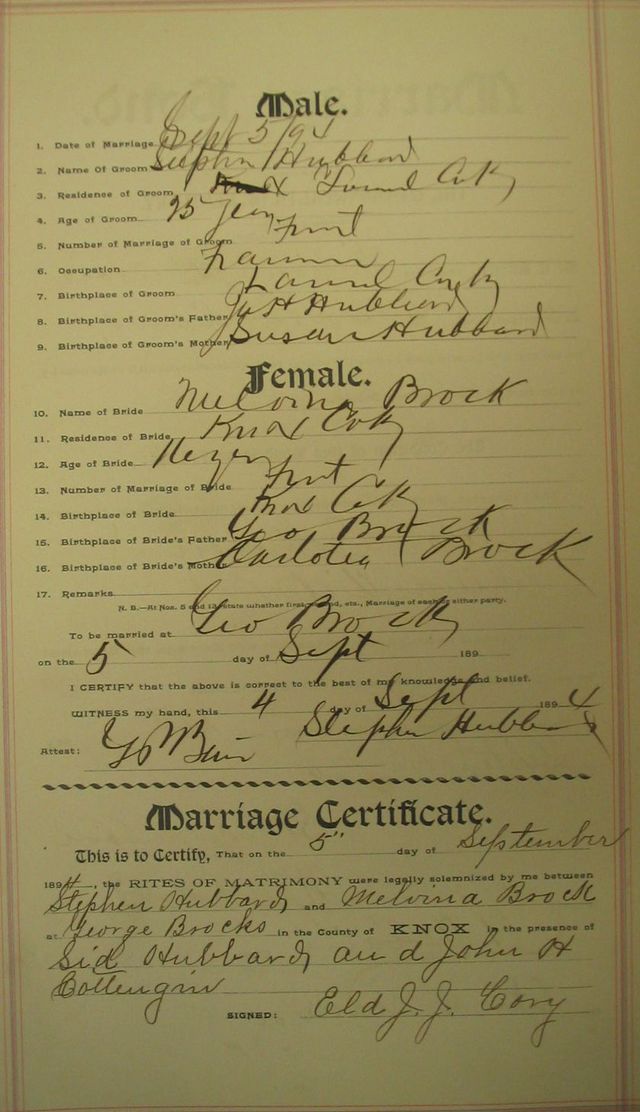 Male.
1. Date of Marriage Sept 5/94
2. Name Of Groom Stephen Hubbard
3. Residence of Groom Laurel Co Ky
4. Age of Groom 25 years
5. Number of Marriage of Groom First
6. Occupation Farmer
7. Birthplace of Groom Laurel Co Ky
8. Birthplace of Groom's Father H Hubbard
9. Birthplace of Groom's Mother Susan Hubbard
Female.
10. Name of Bride Melvina Brock
11. Residence of Bride Knox Co Ky
12. Age of Bride
13. Number of Marriage of Bride First
14. Birthplace of Bride Knox Co Ky
15. Birthplace of Bride's Father Geo Brock
16. Birthplace of Bride's Mother Brock
17. Remarks
N. B.—At Nos. 5 and 13 state whether first, second, etc., Marriage of each or either party.
To be married at Geo Brock
on the 5 day of Sept 189
I CERTIFY that the above is correct to the best of my knowledge and belief.
WITNESS my hand, this 4 day of Sept 1894
Stephen Hubbard
Attest:
Marriage Certificate.
This is to Certify, That on the 5" day of September
1894, the RITES OF MATRIMONY were legally solemnized by me between
Stephen Hubbard and Melvina Brock
at George Brocks in the County of KNOX in the presence of
Sid Hubbard and John H
Cottengin
SIGNED: Eld J. J. Cory